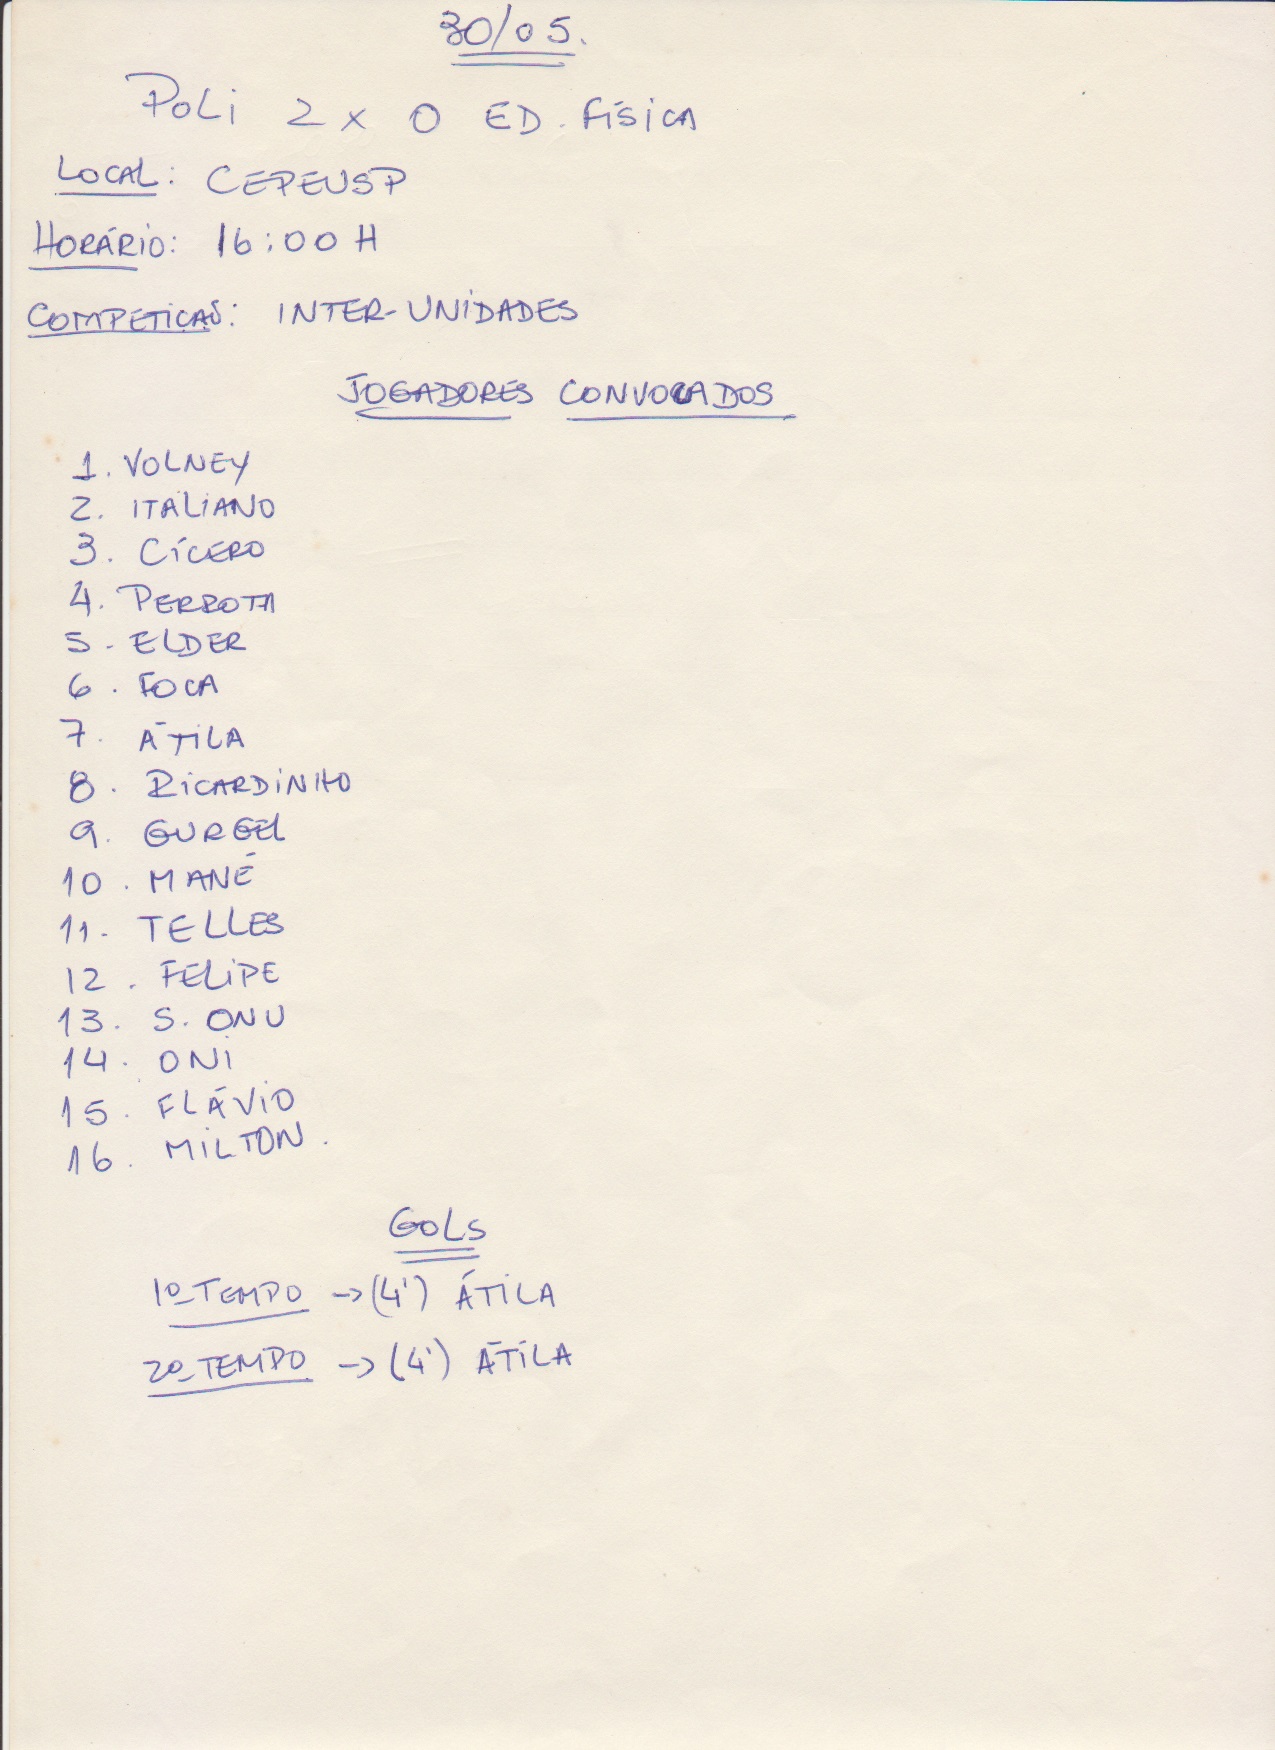 30/05.
POLI 2 x 0 ED. FÍSICA
LOCAL: CEPEUSP
HORÁRIO: 16:00 H
COMPETIÇÃO: INTER-UNIDADES
JOGADORES CONVOCADOS
1. VOLNEY
2. ITALIANO
3. CÍCERO
4. PERROTA
5. ELDER
6. FOCA
7. ÁTILA
8. RICARDINHO
9. GURGEL
10. MANÉ
11. TELLES
12. FELIPE
13. S. ONU
14. ONI
15. FLÁVIO
16. MILTON.
GOLS
1º TEMPO -> (4') ÁTILA
2º TEMPO -> (4') ÁTILA